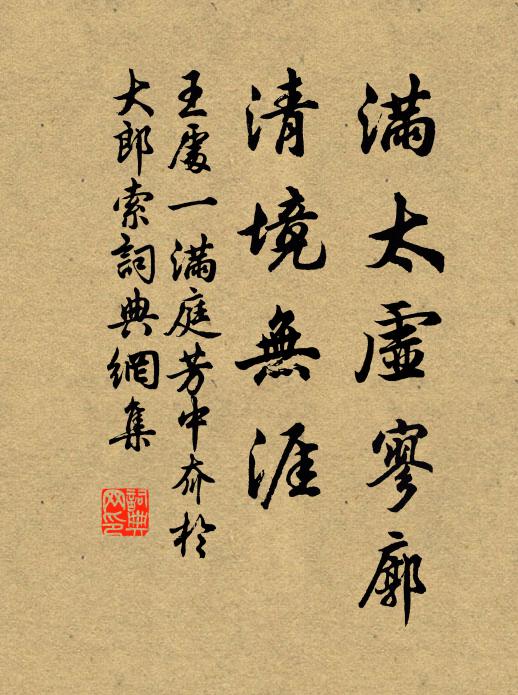 滿太虛寥廓
清境無涯
王處一滿庭芳中夼於
大郎索詞典網集
詞典
网印